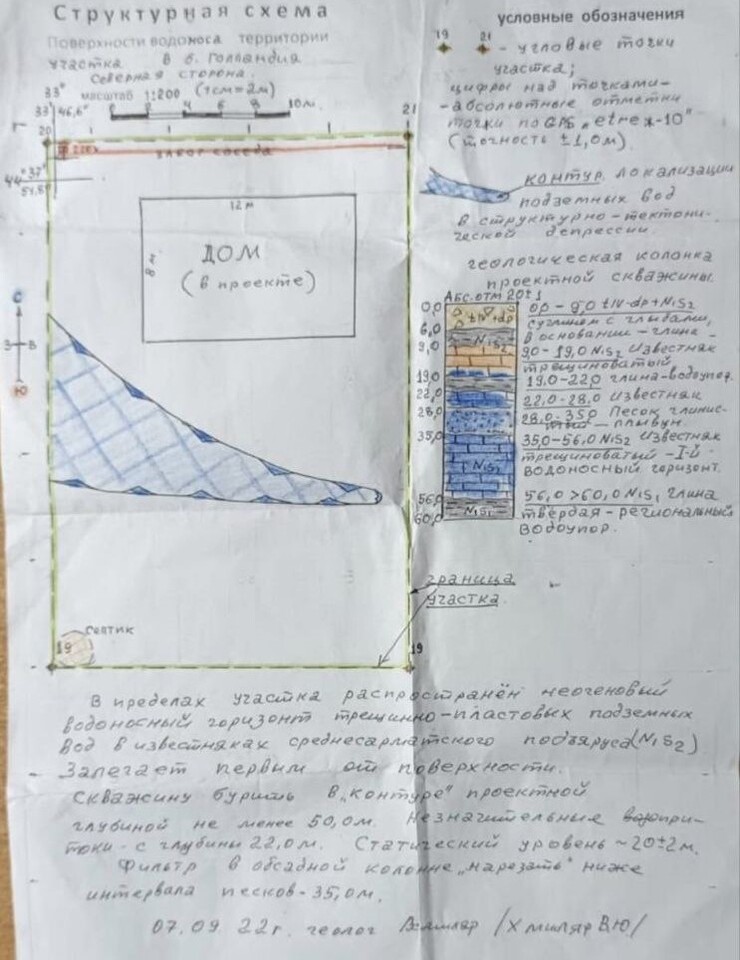 Структурная схема
Поверхности водоноса территории
участка в б. Голландия
Северная сторона.
масштаб 1:200 (1см=2м)
0 2 4 6 8 10м.
33°
33' 46,6"
44° 37'
54,5"
20
21
забор соседа
12 м
8 м
ДОМ
(в проекте)
С
З В
Ю
септик
19
19
граница
участка.
условные обозначения
19 21 - угловые точки
участка;
цифры над точками-
-абсолютные отметки
точки по GPS „etrex-10"
(точность ±1,0м)
контур локализации
подземных вод
в структурно-тектони-
ческой депрессии.
геологическая колонка
проектной скважины.
Абс.отм 20±1
0,0
6,0
9,0
19,0
22,0
28,0
35,0
56,0
60,0
tIV+dp
N₁S₂
N₁S₂
N₁S₁
0,0-9,0 tIV-dp+N₁S₂
суглинок с глыбами,
в основании-глина-
9,0-19,0 N₁S₂ Известняк
трещиноватый
19,0-22,0 глина-водоупор.
22,0-28,0 известняк
28,0-35,0 Песок глинис-
тый-плывун.
35,0-56,0 N₁S₂ Известняк
трещиноватый-I-й
водоносный горизонт.
56,0>60,0 N₁S₁ глина
твёрдая-региональный
водоупор.
В пределах участка распространён неогеновый
водоносный горизонт трещинно-пластовых подземных
вод в известняках среднесарматского подъяруса(N₁S₂)
Залегает первым от поверхности.
Скважину бурить в „контуре" проектной
глубиной не менее 50,0м. Незначительные водопри-
токи-с глубины 22,0м. Статический уровень ~20±2м.
Фильтр в обсадной колонне „нарезать" ниже
интервала песков-35,0м.
07.09.22г. геолог /Хмиляр В.Ю/